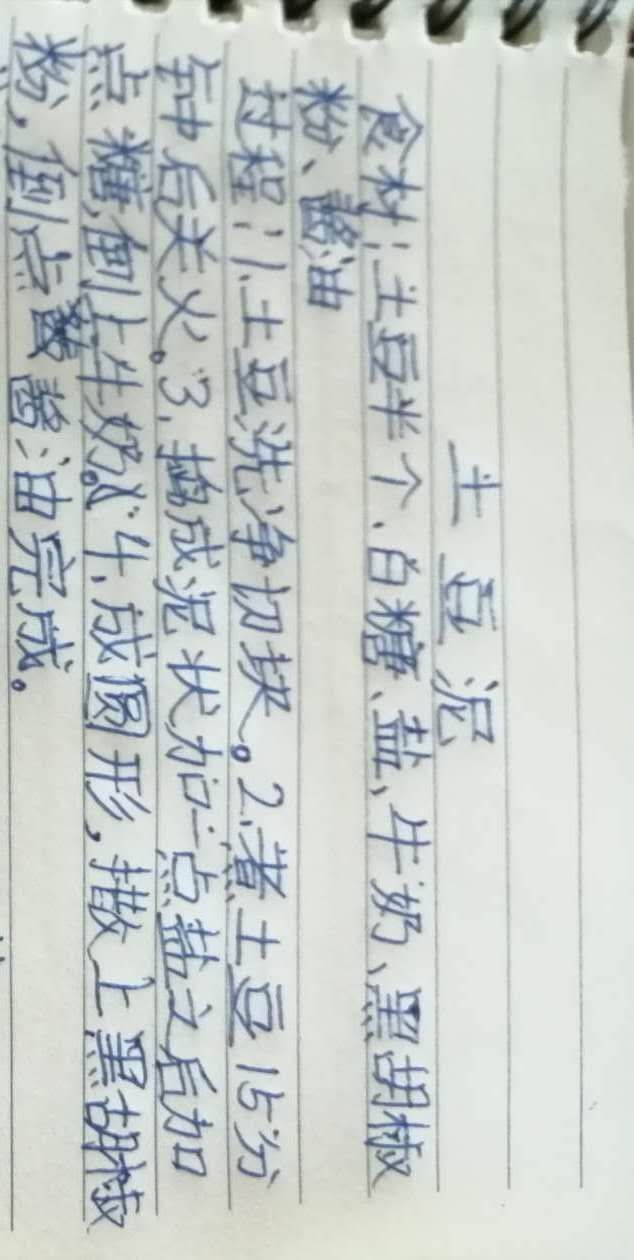 土豆泥
食材:土豆半个、白糖、盐、牛奶、黑胡椒
粉、酱油
过程:1.土豆洗净切块。2.煮土豆15分
钟后关火。3.捣成泥状加一点盐之后加
点糖,倒上牛奶。4.成圆形,撒上黑胡椒
粉,倒点酱油完成。